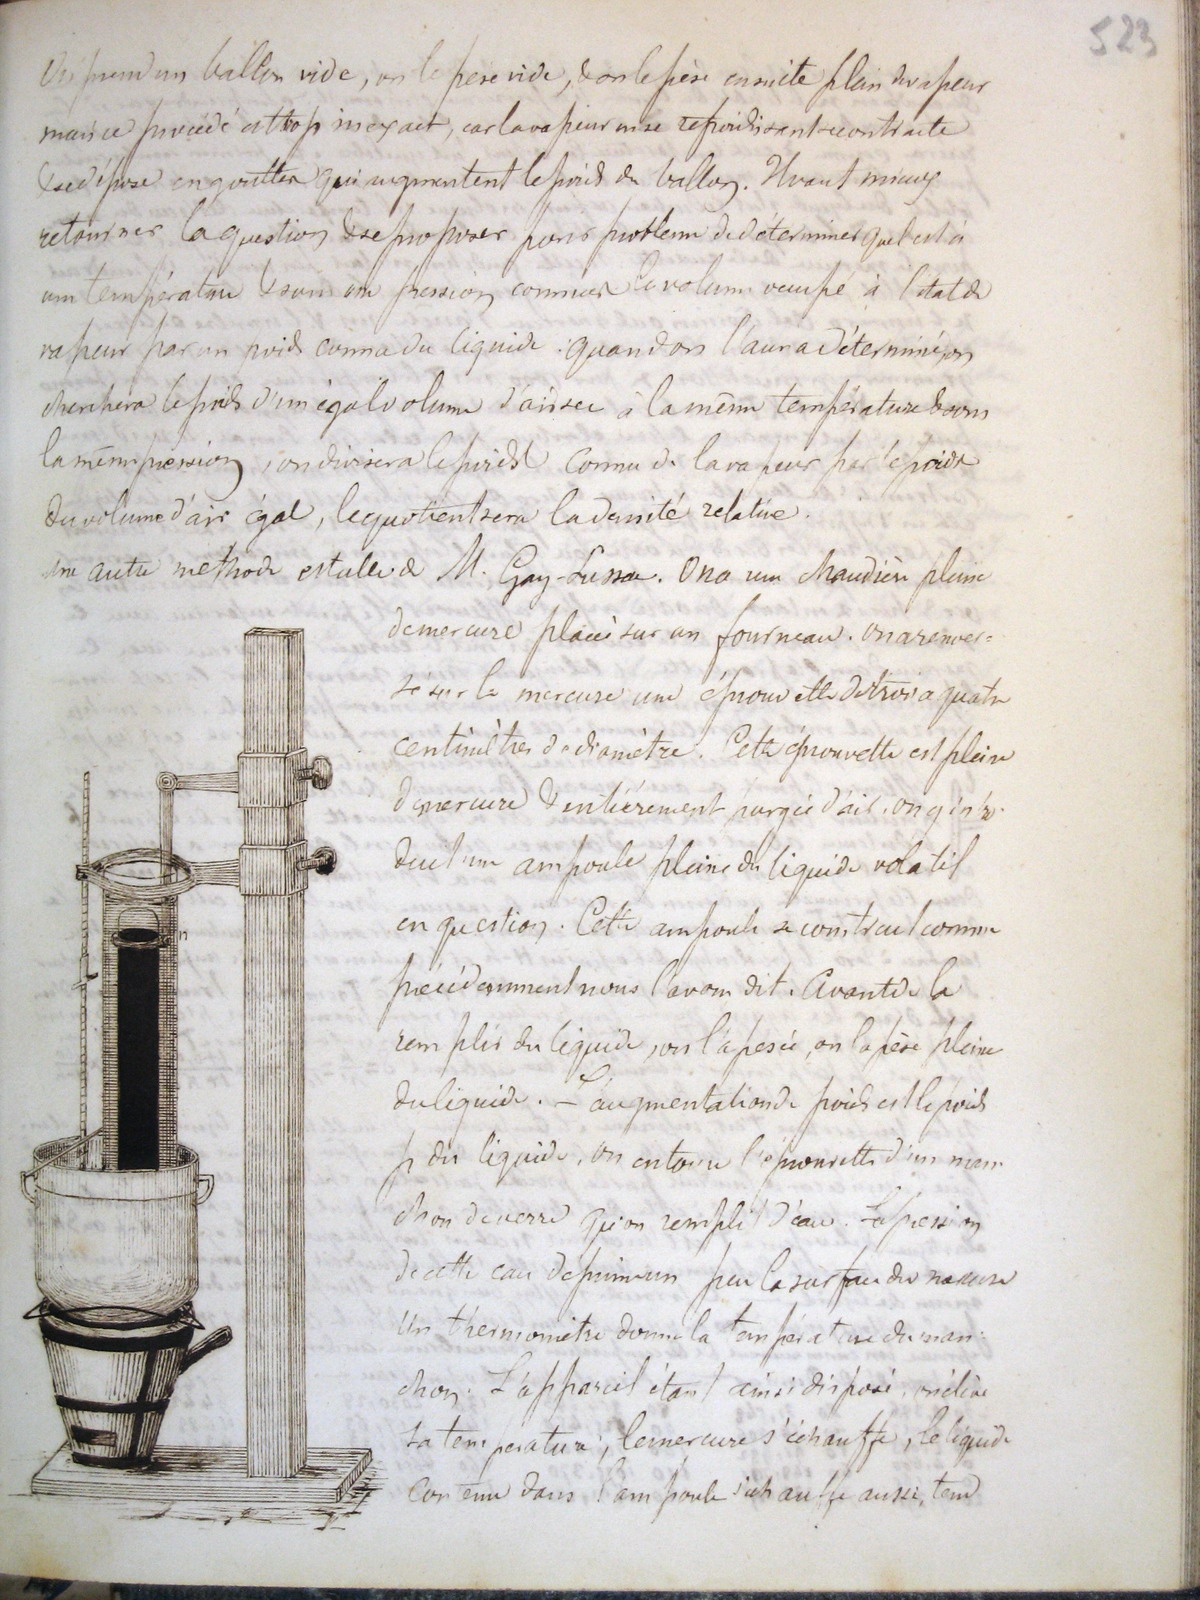 523
On prend un ballon vide, on le pèse vide, & on le pèse ensuite plein de vapeur
mais ce procédé est trop inexact, car la vapeur en se refroidissant se contracte
& se dépose en gouttes qui augmentent le poids du ballon. Il vaut mieux
retourner la question & se proposer pour problème de déterminer quel est à
une température & sous une pression connues le volume occupé à l'état de
vapeur par un poids connu du liquide. quand on l'aura déterminé, on
cherchera le poids d'un égal volume d'air sec à la même température & sous
la même pression, on divisera le poids connu de la vapeur par le poids
du volume d'air égal, le quotient sera la densité relative.
une autre méthode est celle de M. Gay-Lussac. On a une chaudière pleine
de mercure placée sur un fourneau. on a renver=
sé sur le mercure une éprouvette de trois a quatre
centimètres de diamètre. Cette éprouvette est pleine
de mercure & entièrement purgée d'air. on y intro
duit une ampoule pleine du liquide volatil
en question. Cette ampoule se construit comme
précédemment nous l'avons dit. Avant de la
remplir du liquide, on l'a pesée, on la pèse pleine
du liquide. L'augmentation de poids est le poids
p du liquide. on entoure l'éprouvette d'un man
chon de verre qu'on remplit d'eau. La pression
de cette eau déprime un peu la surface du mercure
Un thermomètre donne la température du man-
chon. L'appareil étant ainsi disposé, on élève
sa température, le mercure s'échauffe, le liquide
contenu dans l'ampoule s'échauffe aussi, tend
n